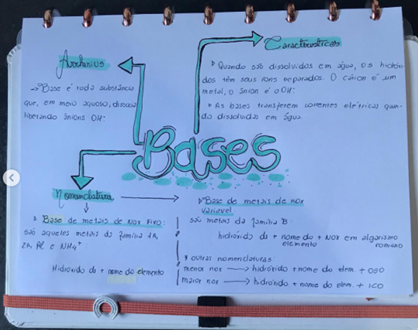 Arrhenius
→ Base é toda substância
que, em meio aquoso, dissocia
liberando ânions OH⁻.
Características
* Quando são dissolvidos em água, os hidró-
xidos têm seus íons separados. O cátion é um
metal, o ânion é o OH⁻
* As bases transferem correntes elétricas quan-
do dissolvidas em água.
Bases
Nomenclatura
* Base de metais de Nox Fixo:
são aqueles metais da família 1A,
2A, e NH4⁺
Hidróxido de + nome do elemento
* Base de metais de nox
variável
são metais da família B.
hidróxido de + nome do + NOX em algarismo
elemento romano
* outras nomenclaturas:
menor nox → hidróxido + nome do elem. + OSO
maior nox → hidróxido + nome do elem. + ICO